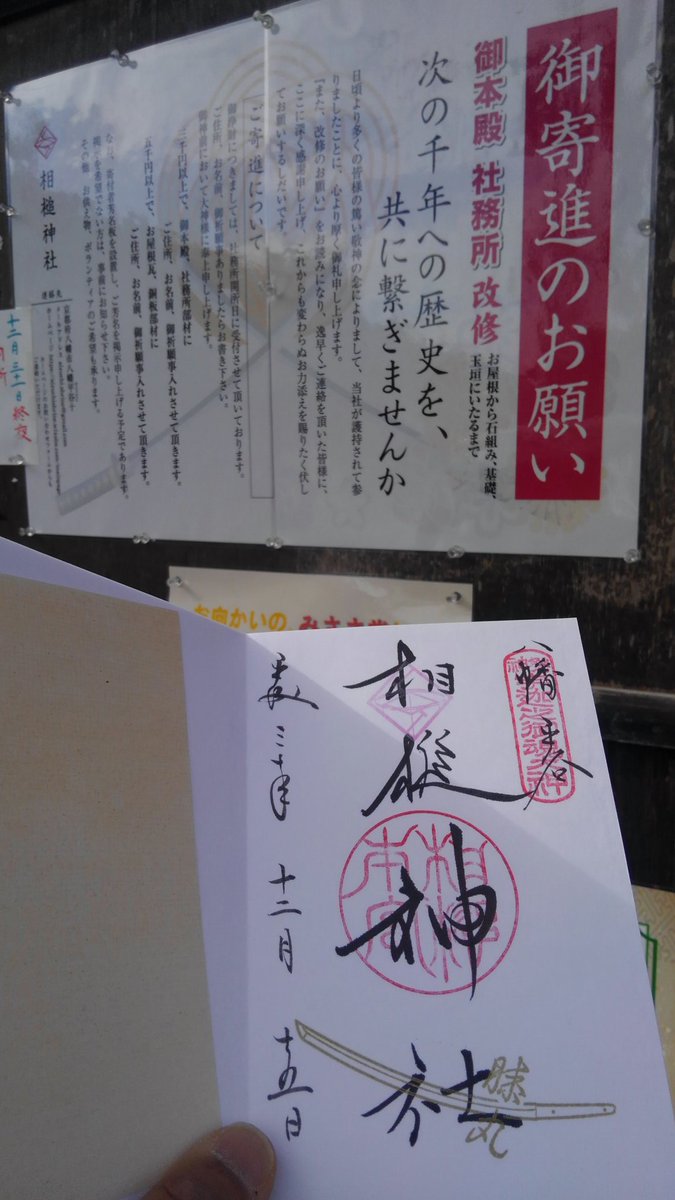 御寄進のお願い
御本殿 社務所 改修
お屋根から石組み、基礎、
玉垣にいたるまで
次の千年への歴史を、
共に繋ぎませんか
日頃より多くの皆様の篤い敬神の念によりまして、当社が護持されて参
りましたことに、心より厚く御礼申し上げます。
『また、改修のお願い』をお読みになり、逸早くご連絡を頂いた皆様に、
ここに深く感謝申し上げ、これからも変わらぬお力添えを賜りたく伏し
てお願いするしだいです。
ご寄進について
御浄財につきましては、社務所開所日に受付させて頂いております。
ご住所、お名前、御祈願事ありましたらお書き下さい。
御神前において大神様に奉上申し上げます。
三千円以上で、御本殿、社務所部材に
ご住所、お名前、御祈願事入れさせて頂きます。
五千円以上で、お屋根瓦、銅板部材に
ご住所、お名前、御祈願事入れさせて頂きます。
なお、寄付者芳名板を設置し、ご芳名を掲示申し上げる予定であります。
掲示を希望でない方は、事前にお知らせ下さい。
その他 お供え物、ボランティアのご希望も承ります。
相槌神社
連絡先
京都府八幡市八幡平谷十
十二月三十一日終夜
お向かいの
八幡平谷
相槌
神
社
膝丸
平成三十年
十二月
十五日